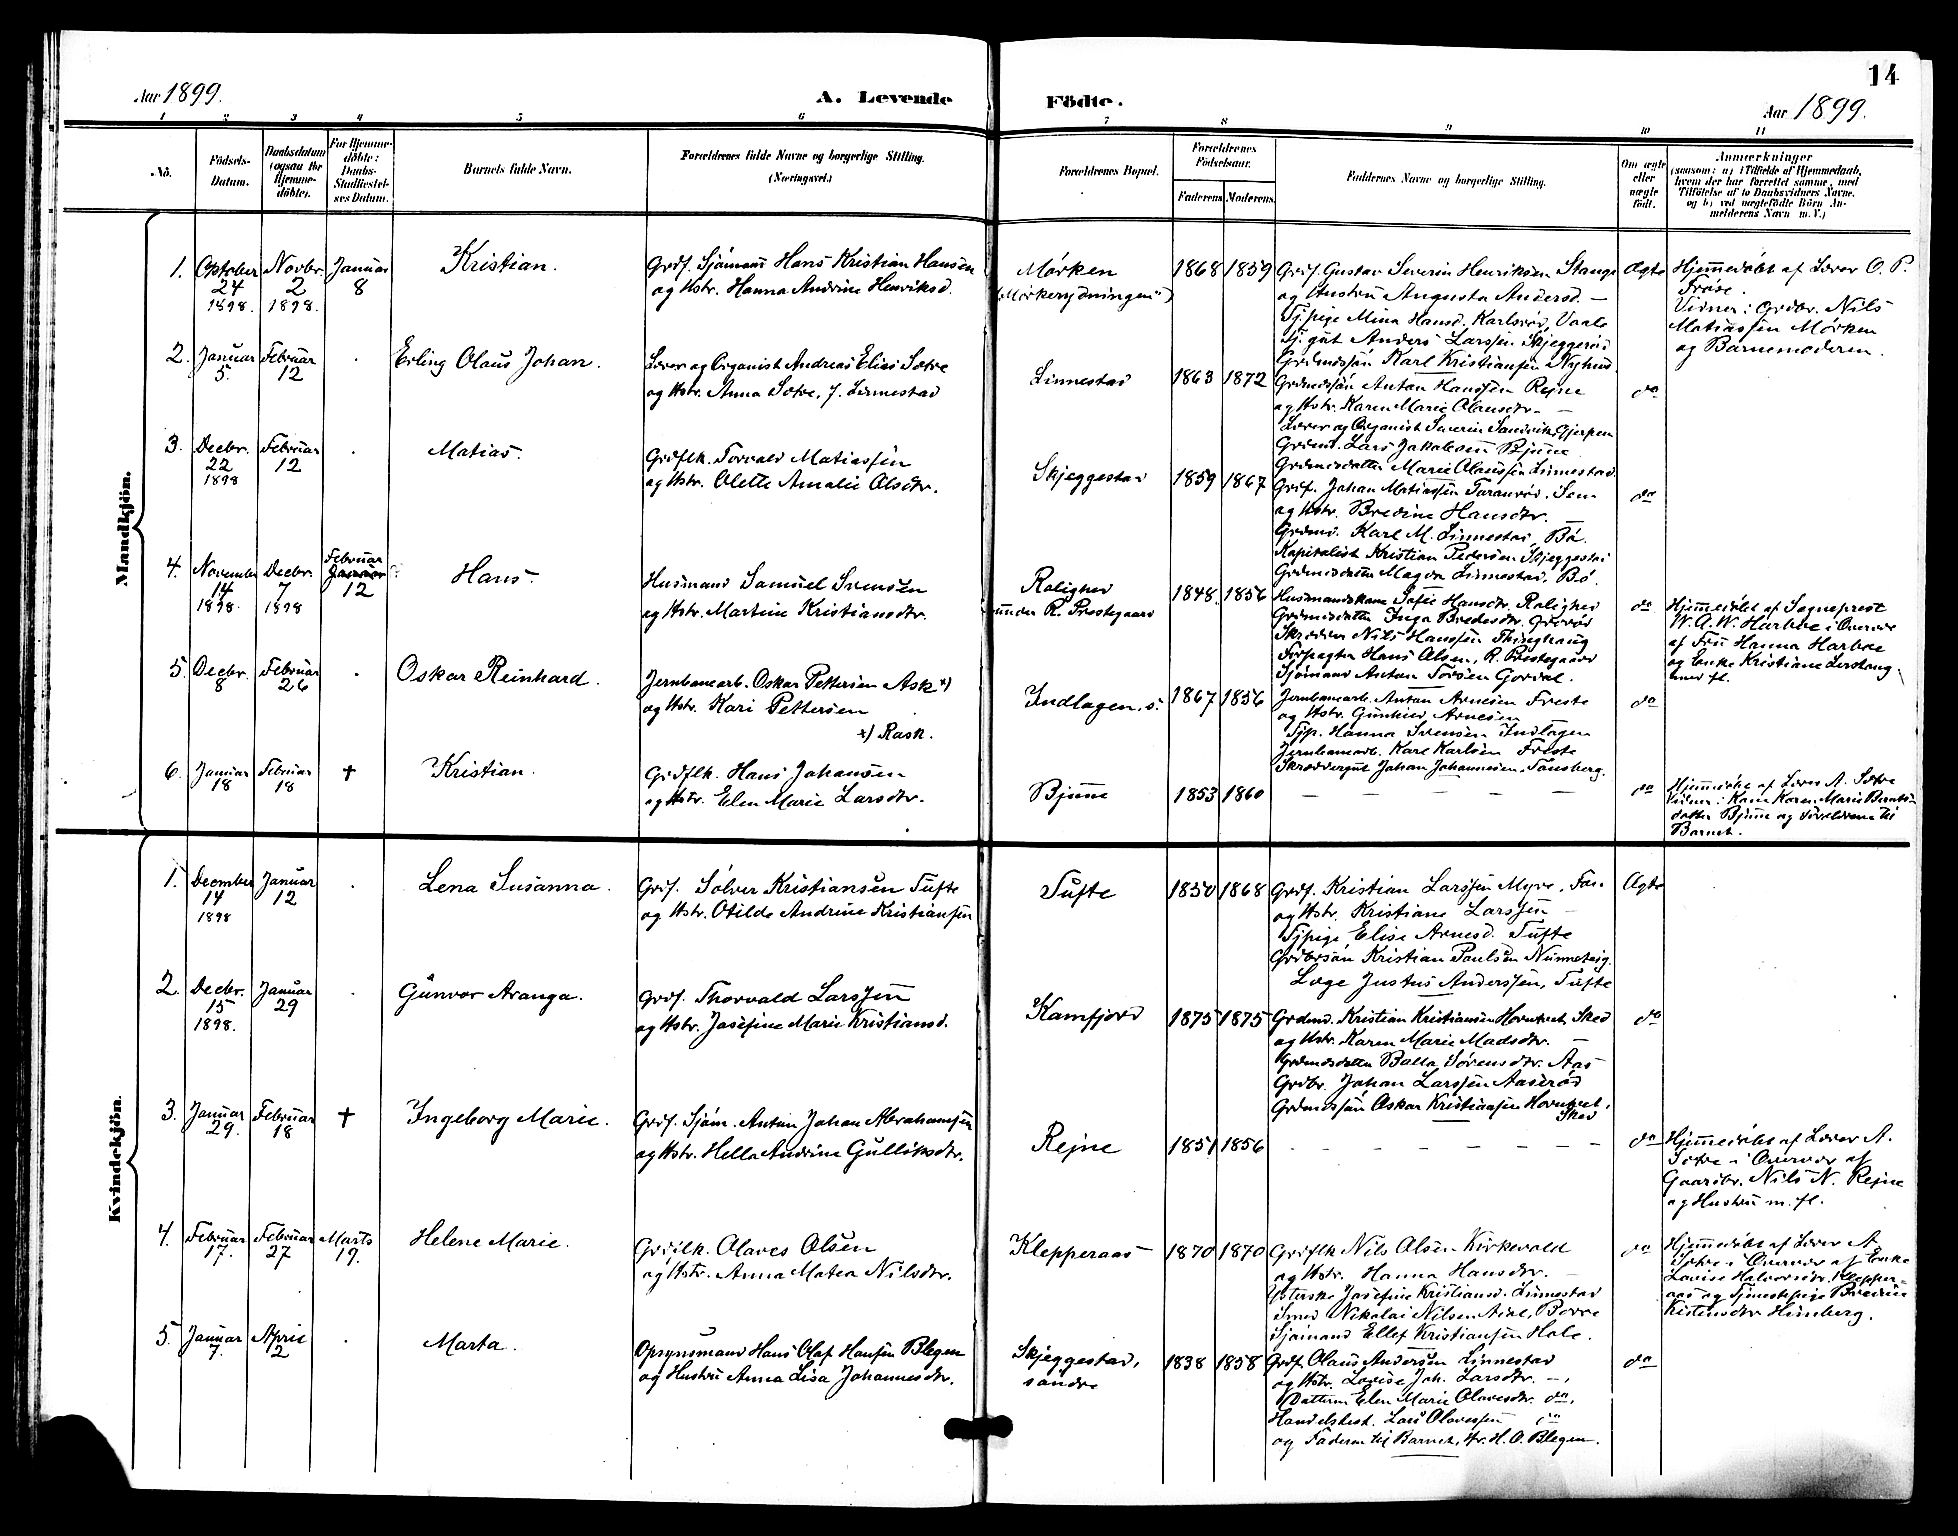 14
Aar 1899.
A. Levende Födte.
Aar 1899.
1 2 3 4 5 6 7 8 9 10 11
No.
Födsels-
Datum.
Daabsdatum
(ogsaa for
Hjemme-
döbte).
For Hjemme-
döbte:
Daabs-
Stadfæstel-
ses Datum.
Barnets fulde Navn.
Forældrenes fulde Navne og borgerlige Stilling.
(Næringsvei.)
Forældrenes Bopæl.
Forældrenes
Födselsaar.
Faderens
Moderens
Faddernes Navne og borgerlige Stilling.
Om ægte
eller
uægte
født.
Anmærkninger
(saasom: a) i Tilfælde af Hjemmedaab,
hvem der har forrettet samme, med
Tilföielse af to Daabsvidners Navne,
og b) ved uægtefödte Börn An-
melderens Navn m. V.)
Mandkjön.
1.
Oktober
24
1898.
Novbr.
2
1898.
Januar
8
Kristian.
Grdf. Sjömand Hans Kristian Hansen
og Hstr. Hanna Andrine Henriksd.
Mörken
(Mörkerydningen")
1868 1859
Grdf. Gustav Severin Henriksen Stange
og Hustru Augusta Andersd. —
Tjpige Mina Hansd. Karlsrød, Vaale
Tj.gut Anders Larssen Skjeggerød
Grdmdssön Karl Kristiansen Nylund.
Ægte
Hjemmedöbt af Lærer O. P.
Vidner: Grdbr. Nils
Matiassen Mörken
og Barnemoderen.
2.
Januar
5.
Februar
12
Erling Olaus Johan.
Lærer og Organist Andreas Elias Sætre
og Hstr. Anna Sætre, f. Linnestad
Linnestad
1863 1872
Grdmdssön Anton Hanssen Rejne
og Hstr. Karen Marie Olausdtr. —
Lærer og Organist Severin Sandvik, Gjerpen
Grdmd. Lars Jakobsen Bjune
Grdmdsdatter Marie Olaussen Linnestad.
do
3.
Decbr.
22
1898
Februar
12
Matias.
Grdflk. Torvald Matiassen
og Hstr. Olette Amalie Olsdtr.
Skjeggestad
1859 1867
Grdf. Johan Matiassen Taranrød. Sem
og Hstr. Bredine Hansdtr. —
Grdmd. Karl M. Linnestad, Bö.
Kapitalist Kristian Pedersen Skjeggestad
Grdmdsdatter Magda Linnestad, Bö.
do
4.
November
14
1898.
Decbr.
7
1898
Februar
12
Hans.
Husmand Samuel Svensen
og Hstr. Martine Kristiansdtr.
Rolighed
under R. Prestegaard
1848. 1856
Husmandskone Sofie Hansdtr. Rolighed
Grdmdsdatter Inga Bredesdtr.
Skrædder Nils Hanssen
Forpagter Hans Olsen, R. Prestegaard
Sjömand Anton
do
Hjemmedöbt af Sogneprest
W. A. W. Harboe i Overvær
af Fru Hanna Harboe
og Enke Kristiane
med fl.
5.
Decbr.
8
Februar
26
Oskar Reinhard.
Jernbanearb. Oskar Pettersen Ask *)
og Hstr. Kari Pettersen
*) Rask.
Indlagen. s.
1867 1856
Jernbanearb. Anton Arnesen Freste
og Hstr. Gunhild Arnesen
Tjp. Hanna Svensen Indlagen
Jernbanearb. Karl Karlsen Freste
Skræddergut Johan Johannesen, Tönsberg.
do
6.
Januar
18
Februar
18
†
Kristian.
Grdflk. Hans Johansen
og Hstr. Elen Marie Larsdtr.
Bjune
1853 1860
— — — — —
do
Hjemmedöbt af Lærer A. Sætre
Vidner: Kone Karen Marie
datter Bjune og Forældrene til
Barnet.
Kvindekjön.
1.
December
14
1898
Januar
12
Lena Susanna.
Grdf. Sölver Kristiansen Tufte
og Hstr. Otilde Andrine Kristiansen
Tufte
1850 1868
Grdf. Kristian Larssen Myre,
og Hstr. Kristiane Larssen —
Tjpige Elise Arnesd. Tufte
Grdbrsön Kristian Paulsen
Læge Justus Anderssen, Tufte
Ægte
2.
Decbr.
15
1898.
Januar
29
Gunvor Aranga.
Grdf. Thorvald Larssen
og Hstr. Josefine Marie Kristiansd.
Kamfjord
1875 1875
Grdmd. Kristian Kristiansen
og Hstr. Karen Marie Madsdtr. —
Grdmdsdatter Balla Sörensdtr. Aas
Grdbr. Johan Larssen Aaseröd
Grdmdssön Oskar Kristiansen
do
3.
Januar
29.
Februar
18
†
Ingeborg Marie.
Grdf. Sjöm. Anton Johan Abrahamsen
og Hstr. Hella Andrine Gulliksdtr.
Rejne
1851 1856
— — — — —
do
Hjemmedöbt af Lærer A.
Sætre i Overvær af
Gaardbr. Nils N. Rejne
og Hustru m. fl.
4.
Februar
17.
Februar
27
Marts
19.
Helene Marie.
Grdflk. Olaves Olsen
og Hstr. Anna Matea Nilsdtr.
Klepperaas
1870 1870
Grdflk Nils Olsen Kirkevold
og Hstr. Hanna Hansdtr. —
Josefine Kristiansd. Linnestad
Smed Nikolai Nilsen Borre
Sjömand Ellef Kristiansen Hole.
do
Hjemmedöbt af Lærer A
Sætre i Overvær af Enke
Lovise Halvorsdtr. Klepper-
aas og Tjenestepige Bredine
Kistensdtr Himberg.
5.
Januar
7.
April
2
Marta.
Opsynsmand Hans Olaf Hansen Blegen
og Hustru Anna Lisa Johannesdtr.
Skjeggestad,
söndre
1838 1858
Grdf. Olaus Andersen Linnestad
og Hstr. Lovise Joh. Larsdtr. —,
Datteren Elen Marie Olavesdtr. do,
Handelsbest. Lars Olavessen do
og Faderen til Barnet, Hr. H. O. Blegen.
do